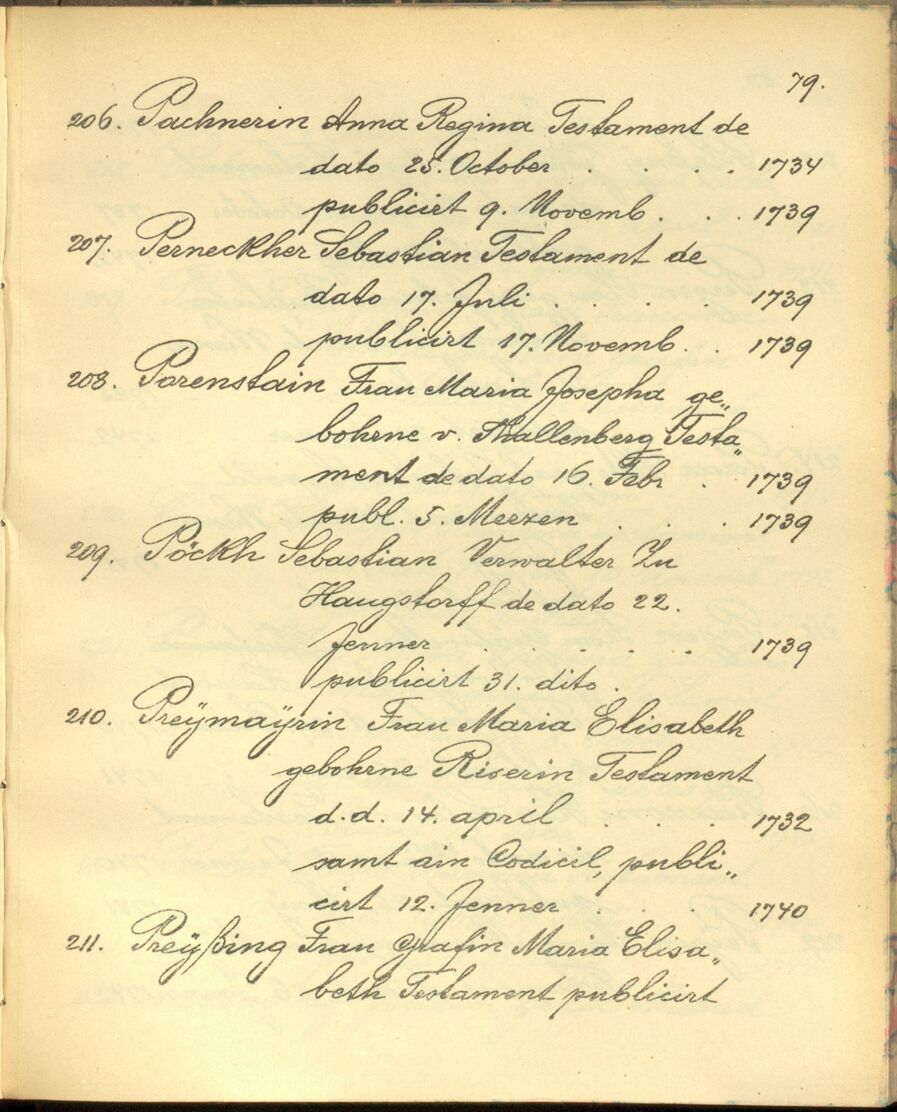 79.
206. Pachnerin Anna Regina Testament de
dato 25. October . . . . 1734
publicirt 9. Novemb. . . 1739
207. Perneckher Sebastian Testament de
dato 17. Juli . . . . 1739
publicirt 17. Novemb. . . 1739
208. Porenstain Frau Maria Josepha ge„
bohrne v. Thallenberg Testa„
ment de dato 16. Febr . 1739
publ. 5. Merzen . . . 1739
209. Pöckh Sebastian Verwalter Zu
Haugstorff de dato 22.
Jenner . . . . . 1739
publicirt 31. dito.
210. Preÿmaÿrin Frau Maria Elisabeth
gebohrne Riserin Testament
d.d. 14. april . . . 1732
samt ain Codicil, publi„
cirt 12. Jenner . . . 1740
211. Preÿßing Frau Grafin Maria Elisa„
beth Testament publicirt